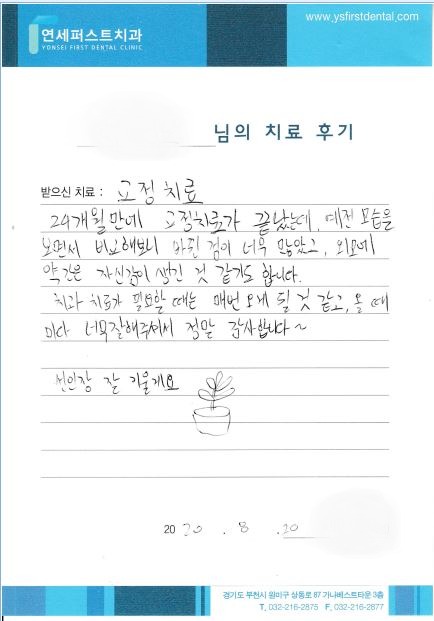 연세퍼스트치과
YONSEI FIRST DENTAL CLINIC
www.ysfirstdental.com
님의 치료 후기
받으신 치료 : 교정 치료
24개월만에 교정치료가 끝났는데, 예전 모습을
보면서 비교해보니 바뀐 점이 너무 많았고, 외모에
약간은 자신감이 생긴 것 같기도 합니다.
치과 치료가 필요할 때는 매번 오게 될 것 같고, 올 때
마다 너무잘해주셔서 정말 감사합니다~
선인장 잘 키울게요
20 20 . 8 . 20
경기도 부천시 원미구 상동로 87 가나베스트타운 3층
T. 032-216-2875 F. 032-216-2877